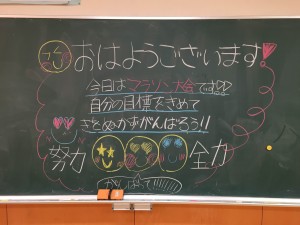 おはようございます!
今日はマラソン大会です!!
自分の目標をきめて
きをぬかずがんばろう!!
努力 全力
がんばって!!!!!!